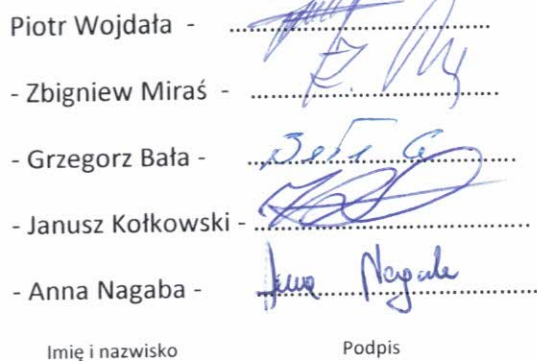 Piotr Wojdała - ........................................
- Zbigniew Miraś - ........................................
- Grzegorz Bała - Bała G........................................
- Janusz Kołkowski - ........................................
- Anna Nagaba - Anna Nagaba........................................
Imię i nazwisko Podpis